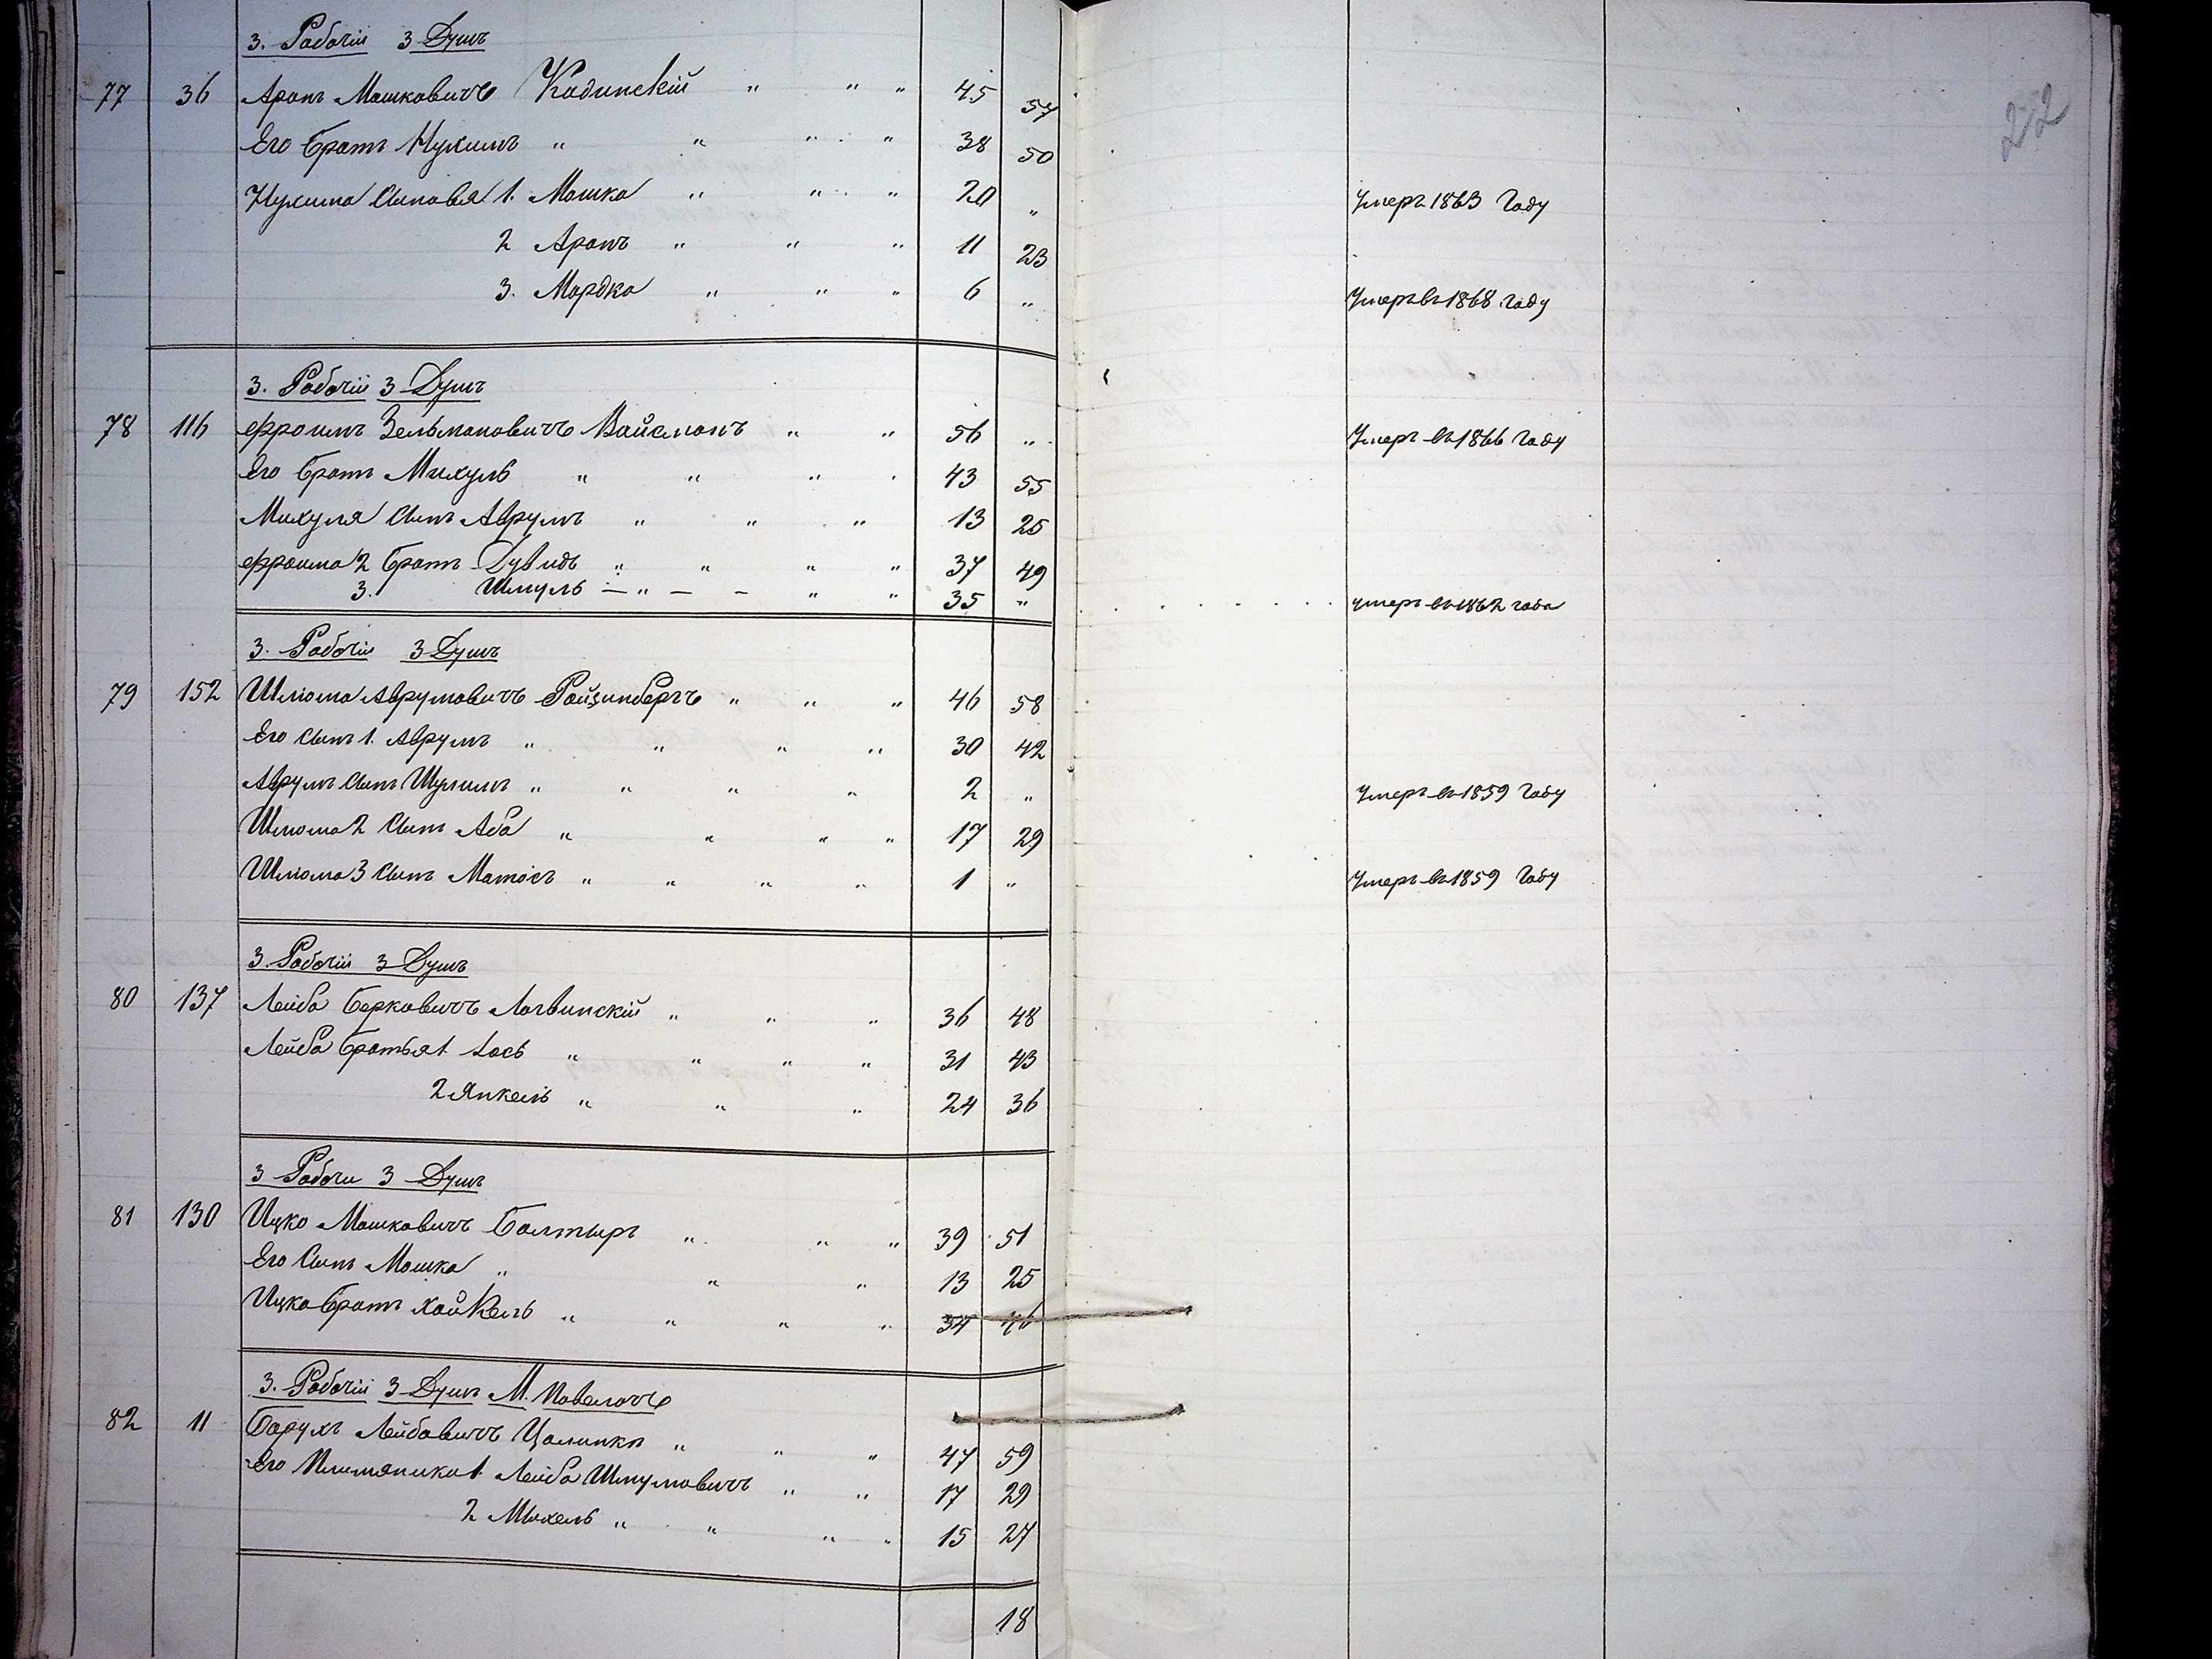 22
3. Рабочiи 3 Душъ
77 36 Аронъ Мошковичъ Кодинскiй " " " 45 57
Его братъ Нухимъ " " " " 38 50
Нухима Сыновья 1. Мошко " " " 20 " Умеръ 1863 Году
2 Аронъ " " " 11 23
3. Мордко " " " 6 " Умеръ въ 1868 Году
3. Рабочiи 3 Душъ
78 116 Фроимъ Зельмановичъ Вайсманъ " " 56 " Умеръ въ 1866 Году
Его братъ Михуль " " " " 43 55
Михуля Сынъ Аврумъ " " " 13 25
Фроима 2 братъ Дувидъ " " " " 37 49
3. Шмуль — " — – " " 35 " Умеръ въ 1862 года
3. Рабочiи 3 Душъ
79 152 Шлiома Аврумовичъ Ройзинбергъ " " " 46 58
Его Сынъ 1. Аврумъ " " " " 30 42
Аврумъ Сынъ Шулимъ " " " " 2 " Умеръ въ 1859 Году
Шлиома 2 Сынъ Аба " " " " 17 29
Шлiома 3 Сынъ Матiосъ " " " " 1 " Умеръ въ 1859 Году
3. Рабочiи 3 Душъ
80 137 Лейба Берковичъ Логвинскiй " " " 36 48
Лейба братья 1 Iось " " " " 31 43
2 Янкель " " " 24 36
3 Рабочи 3 Душъ
81 130 Ицко Мошковичъ Болтыръ " " " 39 51
Его Сынъ Мошко " " " 13 25
Ицко братъ Хайкель " " " " 34 46
3. Рабочiи 3 Душъ М.
82 11 Борухъ Лейбовичъ " " " 47 59
Его Племяника 1. Лейба Шмулювичъ " " 17 29
2 Михель " " " " 15 27
18